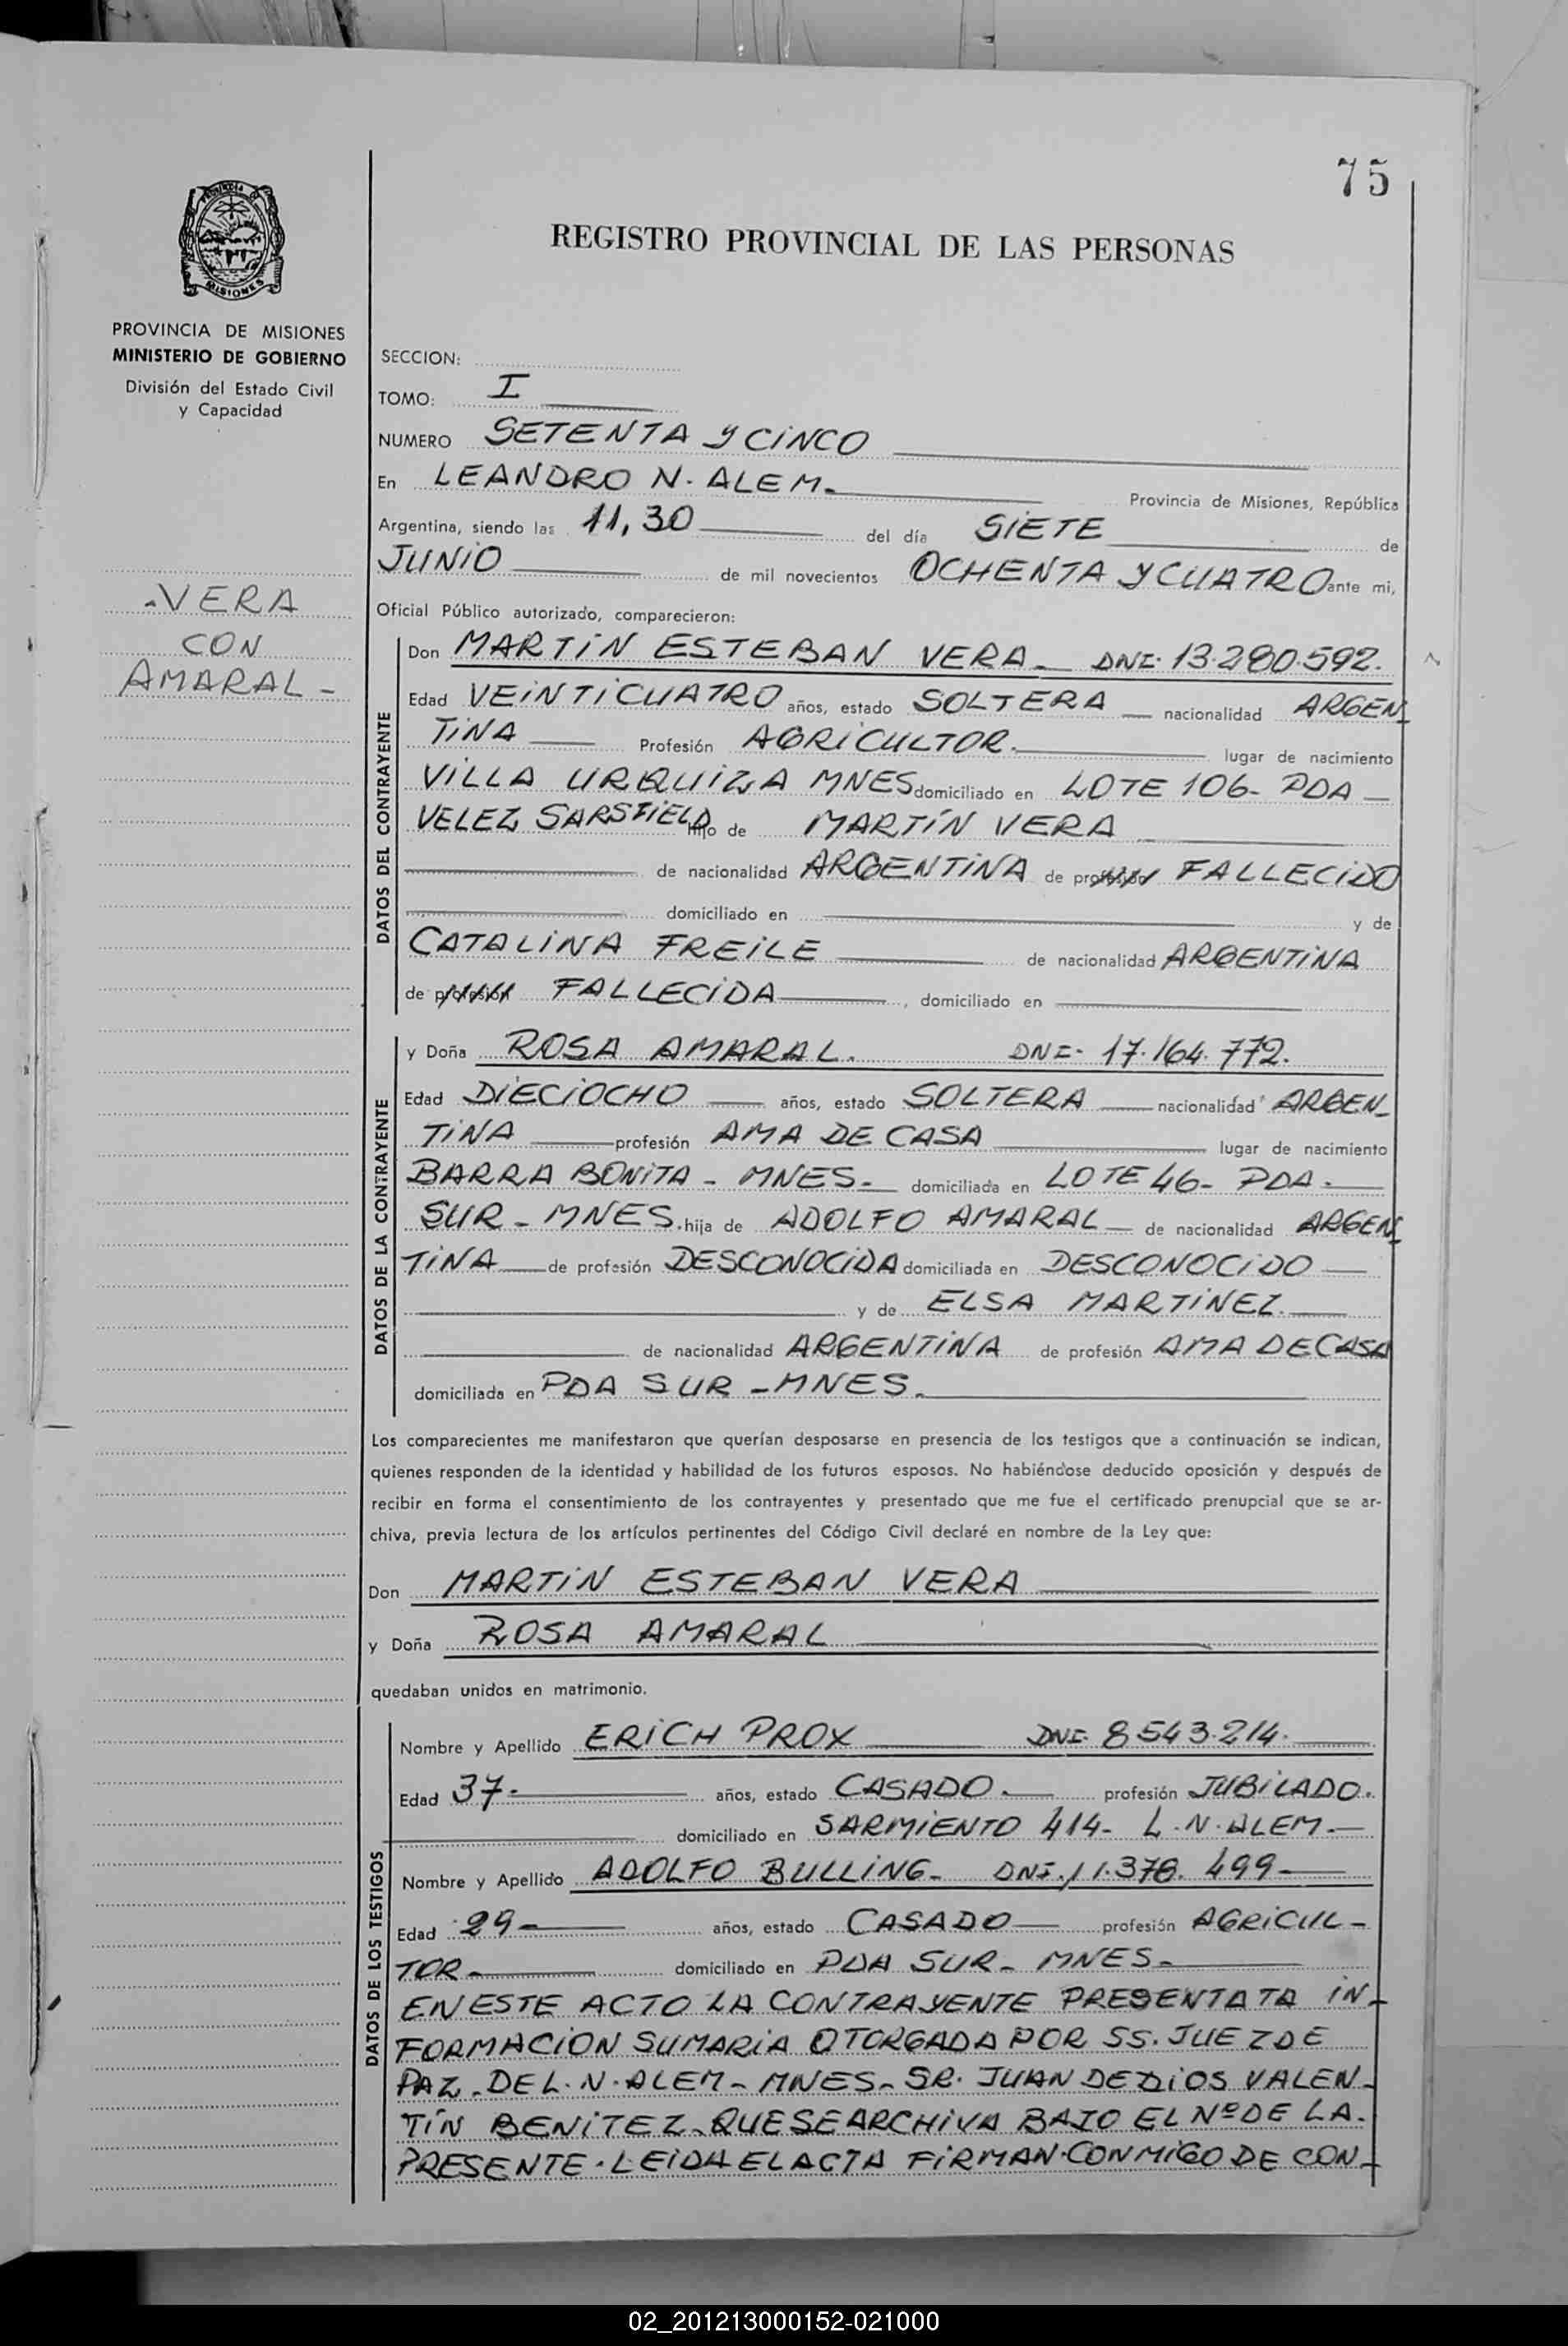 75
REGISTRO PROVINCIAL DE LAS PERSONAS
PROVINCIA DE MISIONES
MINISTERIO DE GOBIERNO
División del Estado Civil
y Capacidad
SECCION:
TOMO: I
NUMERO SETENTA Y CINCO
En LEANDRO N. ALEM. Provincia de Misiones, República
Argentina, siendo las 11,30 del día SIETE de
JUNIO de mil novecientos OCHENTA Y CUATRO ante mi,
Oficial Público autorizado, comparecieron:
VERA
CON
AMARAL -
DATOS DEL CONTRAYENTE
Don MARTIN ESTEBAN VERA - DNI. 13.280.592.
Edad VEINTICUATRO años, estado SOLTERA nacionalidad ARGEN-
TINA Profesión AGRICULTOR. lugar de nacimiento
VILLA URQUIZA MNES domiciliado en LOTE 106- PDA
VELEZ SARSFIELD hijo de MARTÍN VERA
de nacionalidad ARGENTINA de profesión FALLECIDO
domiciliado en y de
CATALINA FREILE de nacionalidad ARGENTINA
de profesión FALLECIDA, domiciliado en
DATOS DE LA CONTRAYENTE
y Doña ROSA AMARAL. DNI- 17.164.772.
Edad DIECIOCHO años, estado SOLTERA nacionalidad ARGEN-
TINA profesión AMA DE CASA lugar de nacimiento
BARRA BONITA - MNES- domiciliada en LOTE 46- PDA.
SUR - MNES. hija de ADOLFO AMARAL de nacionalidad ARGEN-
TINA de profesión DESCONOCIDA domiciliada en DESCONOCIDO
y de ELSA MARTINEZ.
de nacionalidad ARGENTINA de profesión AMA DE CASA
domiciliada en PDA SUR - MNES.
Los comparecientes me manifestaron que querían desposarse en presencia de los testigos que a continuación se indican,
quienes responden de la identidad y habilidad de los futuros esposos. No habiéndose deducido oposición y después de
recibir en forma el consentimiento de los contrayentes y presentado que me fue el certificado prenupcial que se ar-
chiva, previa lectura de los artículos pertinentes del Código Civil declaré en nombre de la Ley que:
Don MARTIN ESTEBAN VERA
y Doña ROSA AMARAL
quedaban unidos en matrimonio.
DATOS DE LOS TESTIGOS
Nombre y Apellido ERICH PROX DNI- 8543.214.
Edad 37- años, estado CASADO. profesión JUBILADO.
domiciliado en SARMIENTO 414- L.N.ALEM.
Nombre y Apellido ADOLFO BULLING- DNI. 11.378.499-
Edad 29- años, estado CASADO profesión AGRICUL-
TOR- domiciliado en PDA SUR- MNES-
EN ESTE ACTO LA CONTRAYENTE PRESENTA TA IN-
FORMACION SUMARIA OTORGADA POR SS. JUEZ DE
PAZ. DE L.N.ALEM- MNES- SR. JUAN DE DIOS VALEN-
TÍN BENITEZ- QUE SE ARCHIVA BAJO EL Nº DE LA.
PRESENTE. LEIDA EL ACTA FIRMAN CONMIGO DE CON-
02_201213000152-021000